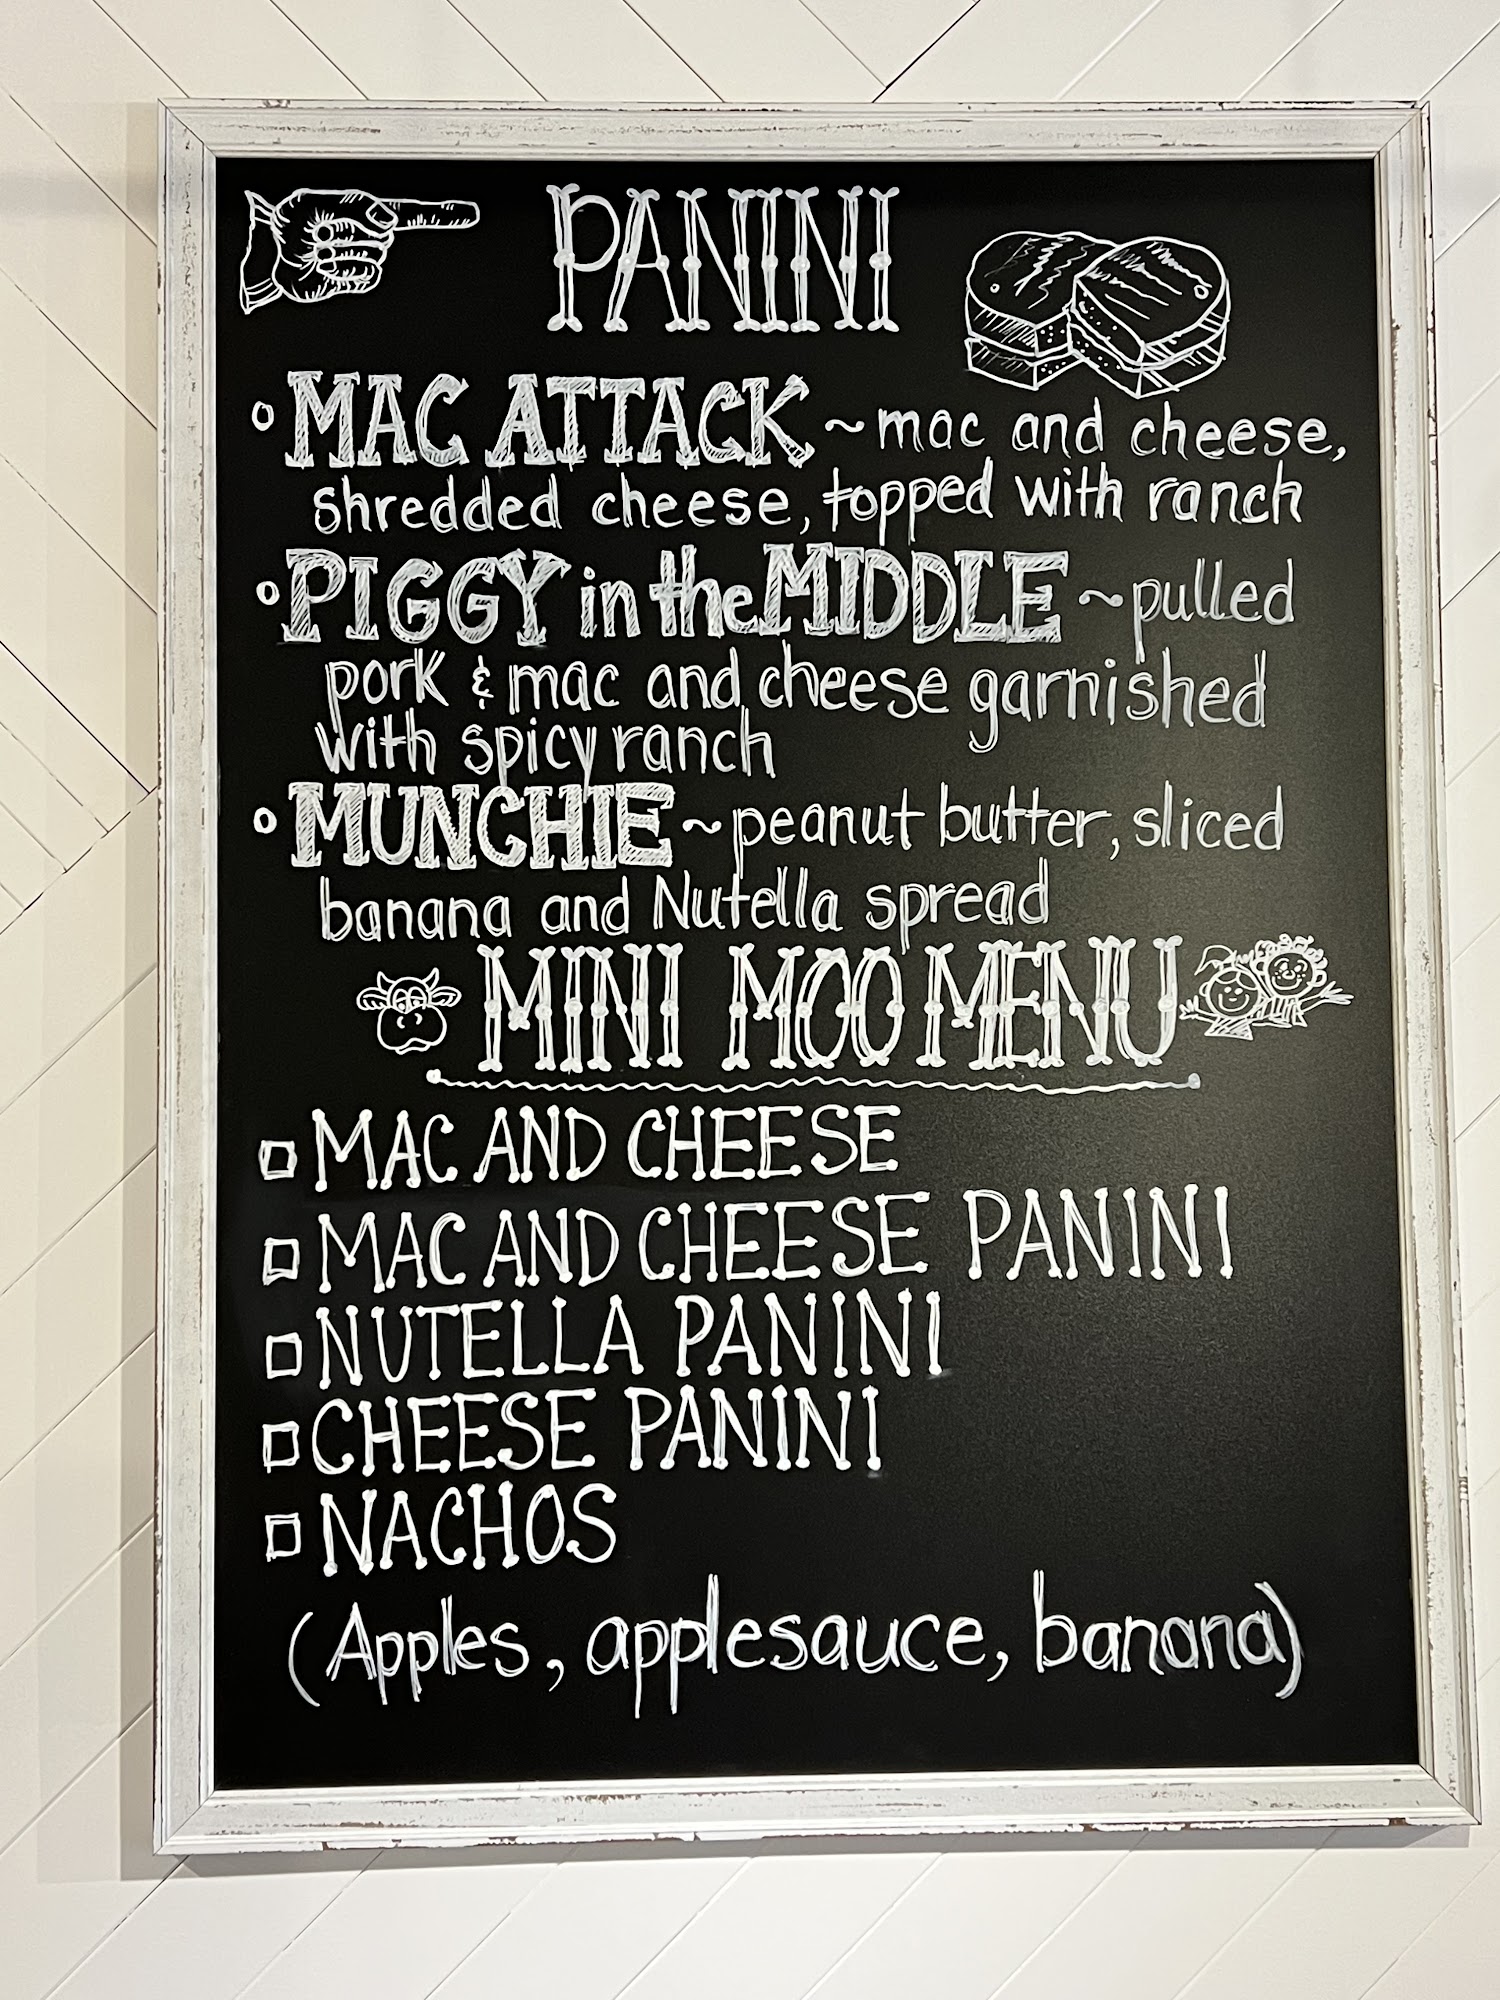 PANINI
MAC ATTACK ~ mac and cheese,
shredded cheese, topped with ranch
PIGGY in the MIDDLE ~ pulled
pork & mac and cheese garnished
with spicy ranch
MUNCHIE ~ peanut butter, sliced
banana and Nutella spread
MINI MOO MENU
MAC AND CHEESE
MAC AND CHEESE PANINI
NUTELLA PANINI
CHEESE PANINI
NACHOS
(Apples, applesauce, banana)